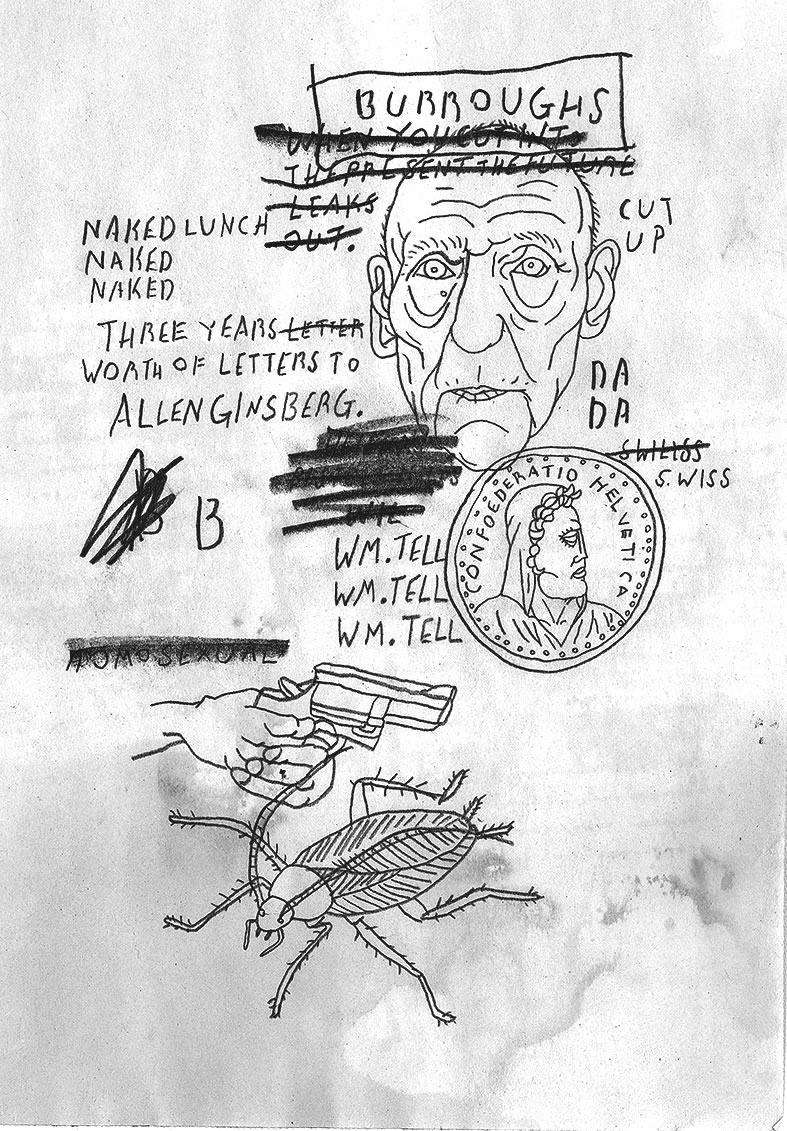 BURROUGHS
WHEN YOU CUT INTO
THE PRESENT THE FUTURE
LEAKS
OUT.
CUT
UP
NAKED LUNCH
NAKED
NAKED
THREE YEARS LETTER
WORTH OF LETTERS TO
ALLEN GINSBERG.
DA
DA
SWILISS
S.WISS
CONFOEDERATIO HELVETICA
B
WM. TELL
WM. TELL
WM. TELL
HOMOSEXUAL